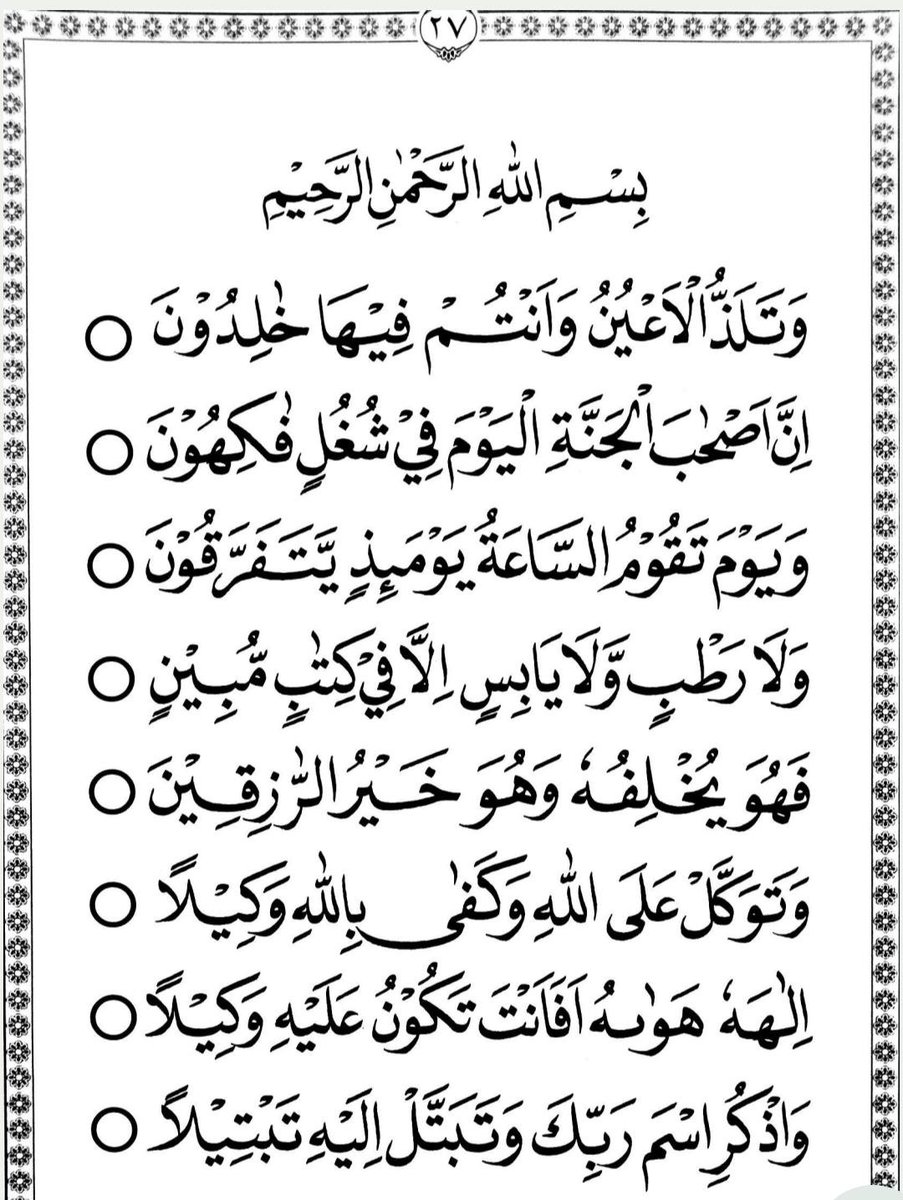 ٢٧
بِسْمِ اللّٰهِ الرَّحْمٰنِ الرَّحِيْمِ
وَتَلَذُّ الْاَعْيُنُ وَاَنْتُمْ فِيْهَا خٰلِدُوْنَ ○
اِنَّ اَصْحٰبَ الْجَنَّةِ الْيَوْمَ فِيْ شُغُلٍ فٰكِهُوْنَ ○
وَيَوْمَ تَقُوْمُ السَّاعَةُ يَوْمَئِذٍ يَّتَفَرَّقُوْنَ ○
وَلَا رَطْبٍ وَّلَا يَابِسٍ اِلَّا فِيْ كِتٰبٍ مُّبِيْنٍ ○
فَهُوَ يُخْلِفُهٗ وَهُوَ خَيْرُ الرّٰزِقِيْنَ ○
وَتَوَكَّلْ عَلَى اللّٰهِ وَكَفٰى بِاللّٰهِ وَكِيْلًا ○
اِلٰهَهٗ هَوٰىهُ اَفَاَنْتَ تَكُوْنُ عَلَيْهِ وَكِيْلًا ○
وَاذْكُرِ اسْمَ رَبِّكَ وَتَبَتَّلْ اِلَيْهِ تَبْتِيْلًا ○